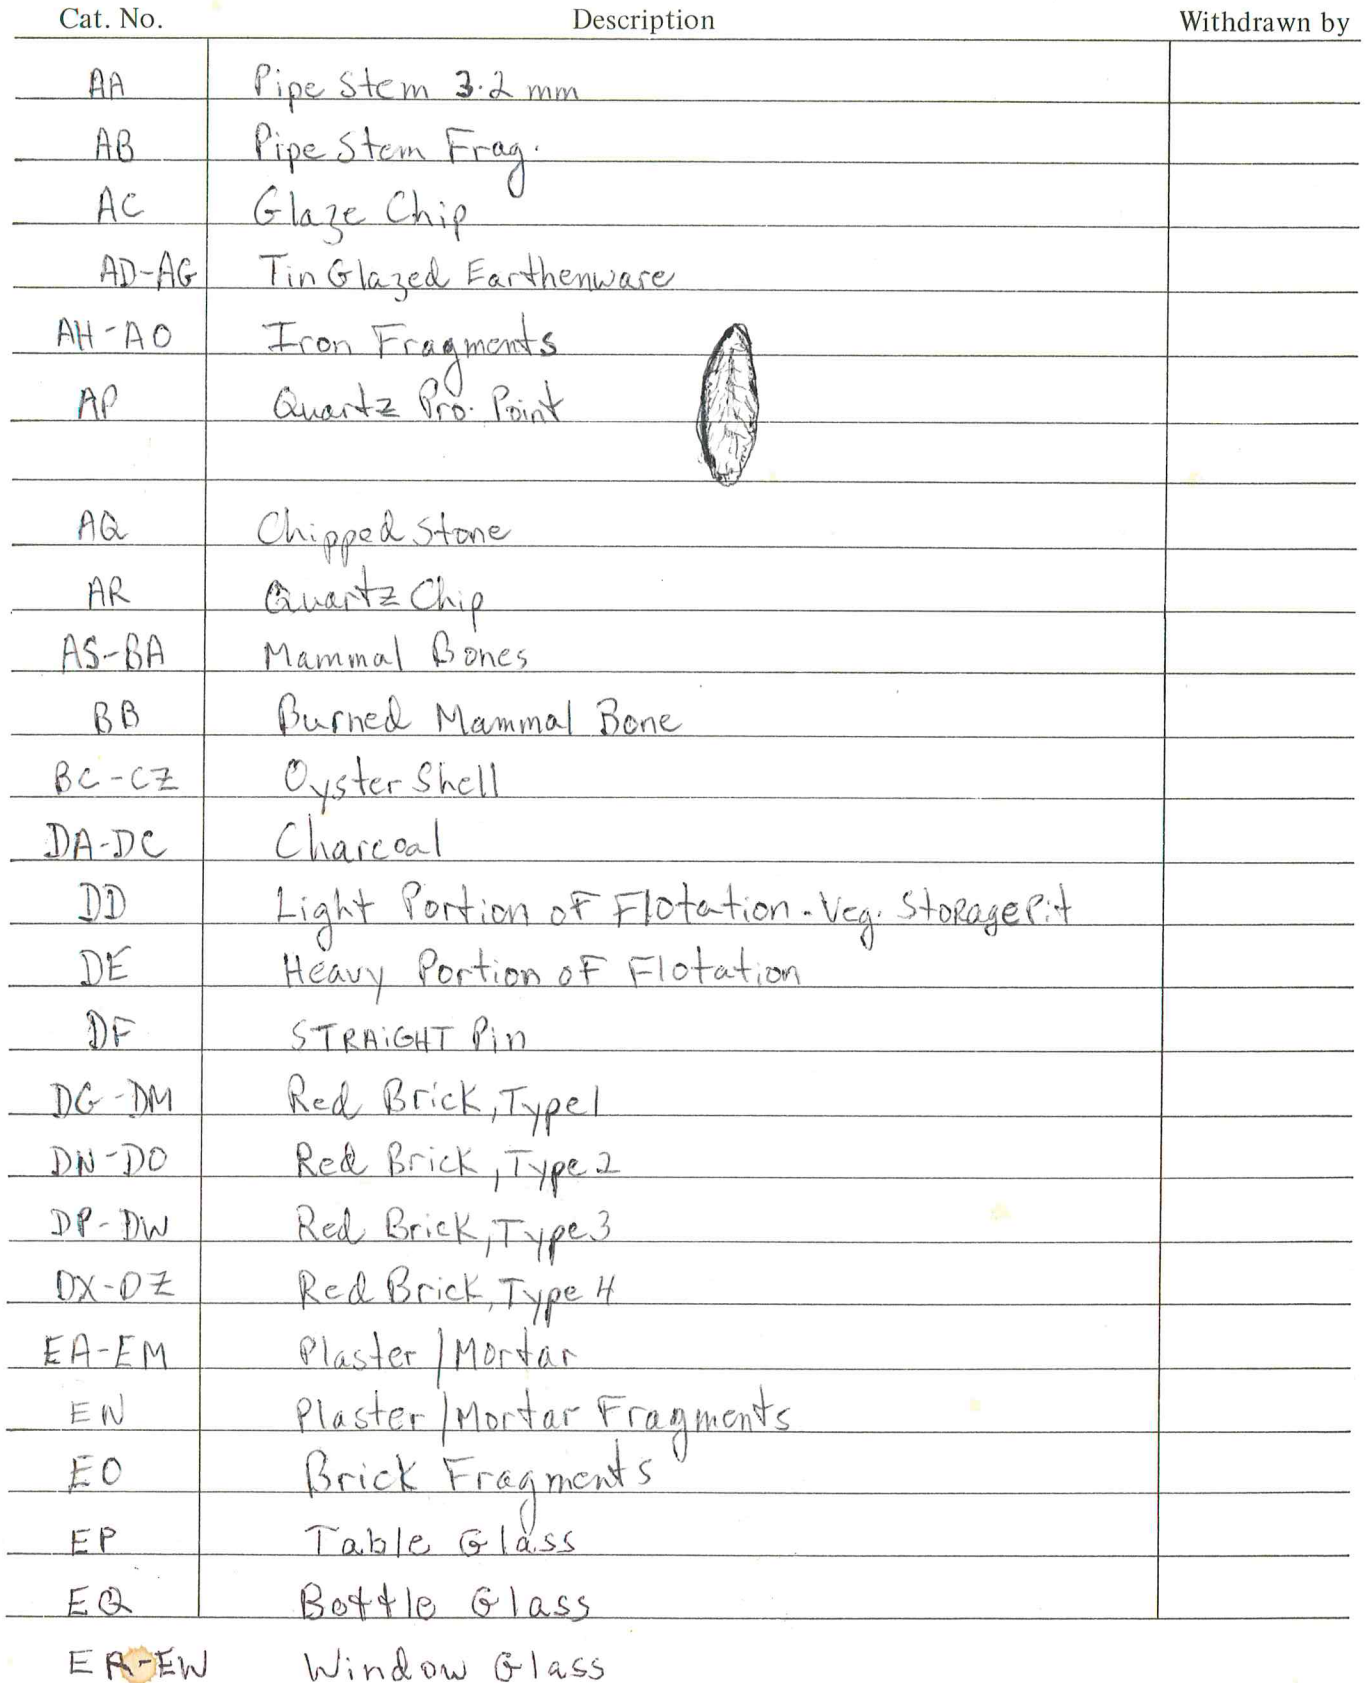 Cat. No. Description Withdrawn by
AA Pipe Stem 3.2 mm
AB Pipe Stem Frag.
AC Glaze Chip
AD-AG Tin Glazed Earthenware
AH-AO Iron Fragments
AP Quartz Pro. Point
AQ Chipped Stone
AR Quartz Chip
AS-BA Mammal Bones
BB Burned Mammal Bone
BC-CZ Oyster Shell
DA-DC Charcoal
DD Light Portion of Flotation - Veg. Storage Pit
DE Heavy Portion of Flotation
DF STRAIGHT Pin
DG-DM Red Brick, Type 1
DN-DO Red Brick, Type 2
DP-DW Red Brick, Type 3
DX-DZ Red Brick, Type 4
EA-EM Plaster/Mortar
EN Plaster/Mortar Fragments
EO Brick Fragments
EP Table Glass
EQ Bottle Glass
ER-EW Window Glass